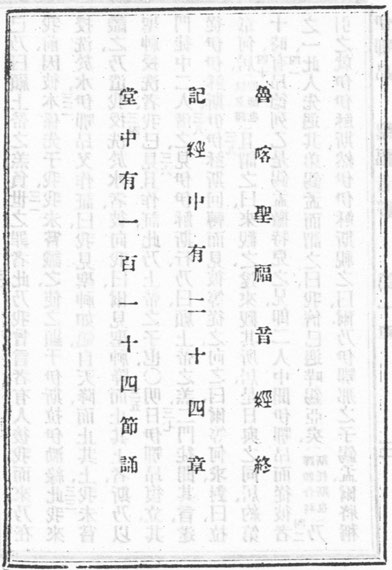 魯喀聖福音經終
記經中有二十四章
堂中有一百一十四節誦